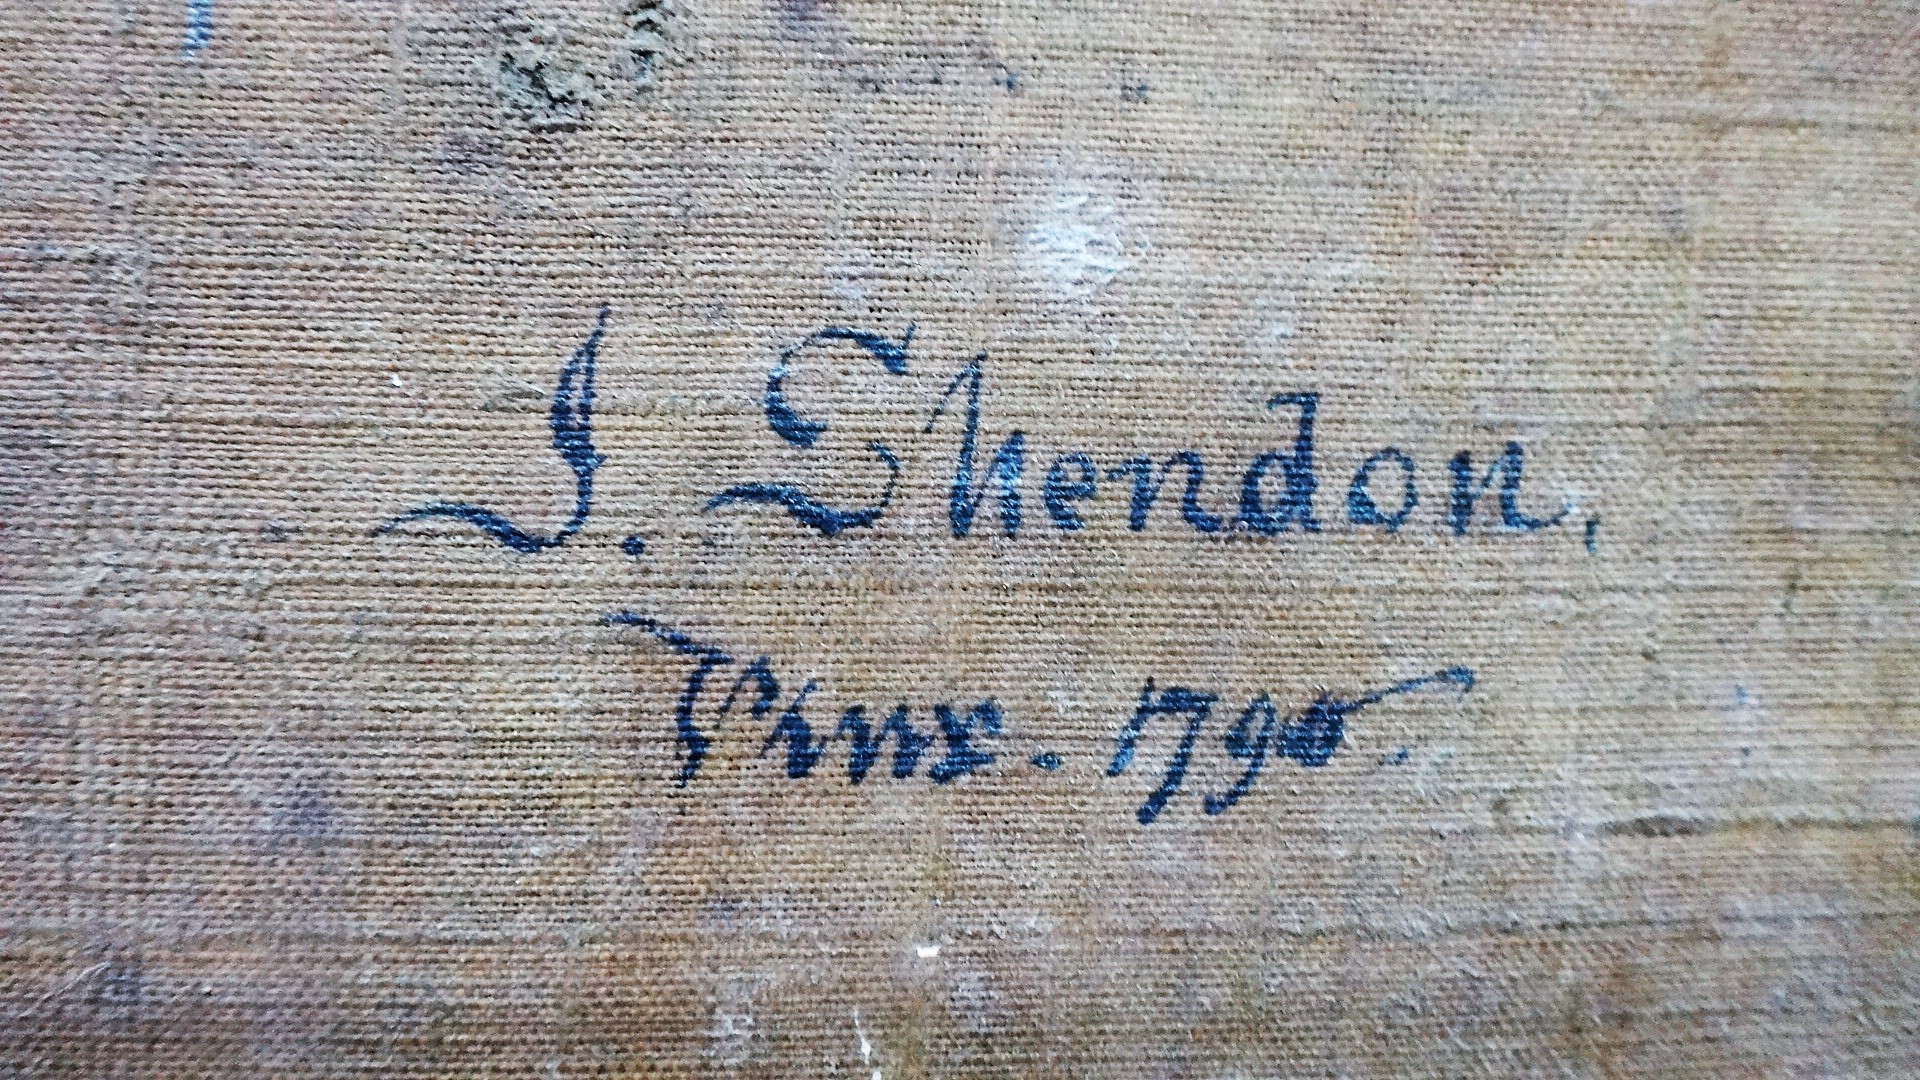 J. Shendon,
Pinx. 1795.